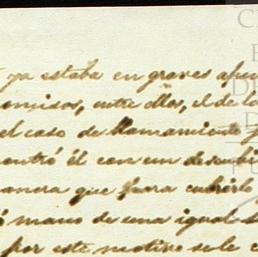 ya estaba en graves apu
omisos, entre ellos, el de la
el caso de llamamiento
contró él con un descubi
anera que para cubrirlo
ó mano de una igual
por este motivo se le